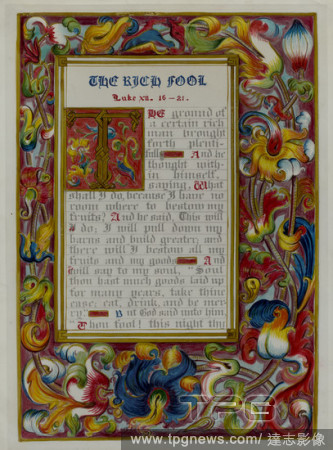 THE RICH FOOL
Luke xii. 16–21.
THE ground of
a certain rich
man brought
forth plenti-
fully And he
thought with-
in himself,
saying What
shall I do, because I have no
room where to bestow my
fruits? And he said, This will
I do; I will pull down my
barns and build greater, and
there will I bestow all my
fruits and my goods And
I will say to my soul, "Soul
thou hast much goods laid up
for many years, take thine
ease, eat, drink, and be mer-
ry. But God said unto him
Thou fool! this night thy
TPG
www.tpgnews.com / 達志影像